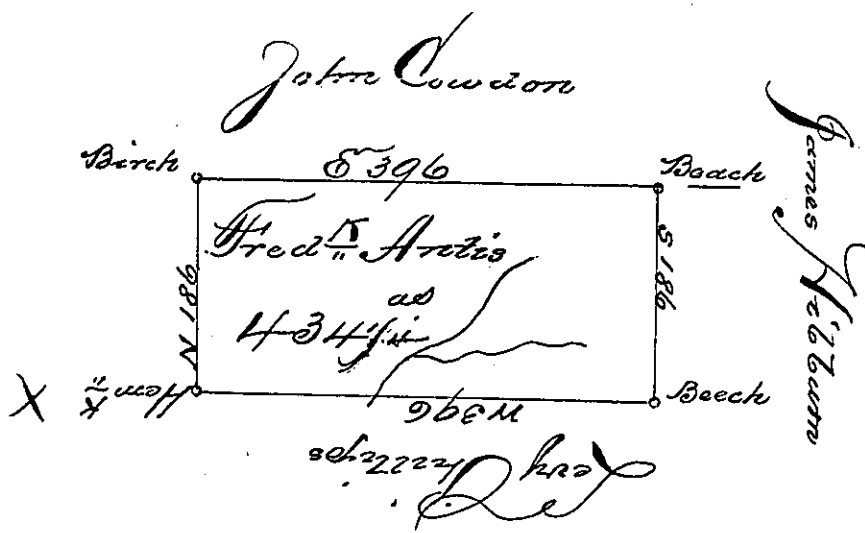 John Cowdon
Birch
E 396
Beach
James Hebburn
Fredk Antis
as
434 1/4
N 186
S 186
X
Hemk
W 396
Beech
Levy